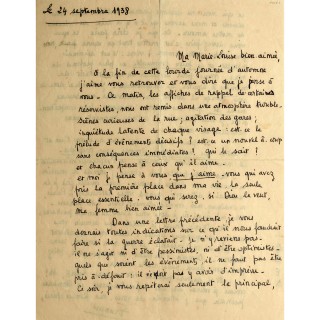 le 24 septembre 1938
Ma Marie-Louise bien aimée,
A la fin de cette lourde journée d'automne
j'aime vous retrouver et vous dire que je pense à
vous. Ce matin, les affiches de rappel de certains
réservistes, nous ont remis dans une atmosphère trouble.
Scènes curieuses de la rue; agitation des gares;
inquiétude latente de chaque visage: est-ce le
prélude d'évènements décisifs? est-ce un nouvel à-coup
sans conséquences immédiates! qui le sait!
et chacun pense à ceux qu'il aime.
et moi je pense à vous que j'aime, vous qui avez
pris la première place dans ma vie: la seule
place essentielle: vous qui serez, si Dieu le veut,
ma femme bien aimée.
Dans une lettre précédente je vous
donnais toutes indications sur ce qu'il nous faudrait
faire si la guerre éclatait. je n'y reviens pas.
il ne s'agit ni d'être pessimistes, ni d'être optimistes.
quels que soient les évènements, il ne faut pas être
pris à défaut: il n'y avoir d'imprévu.
Ce soir, je vous répéterai seulement le principal,